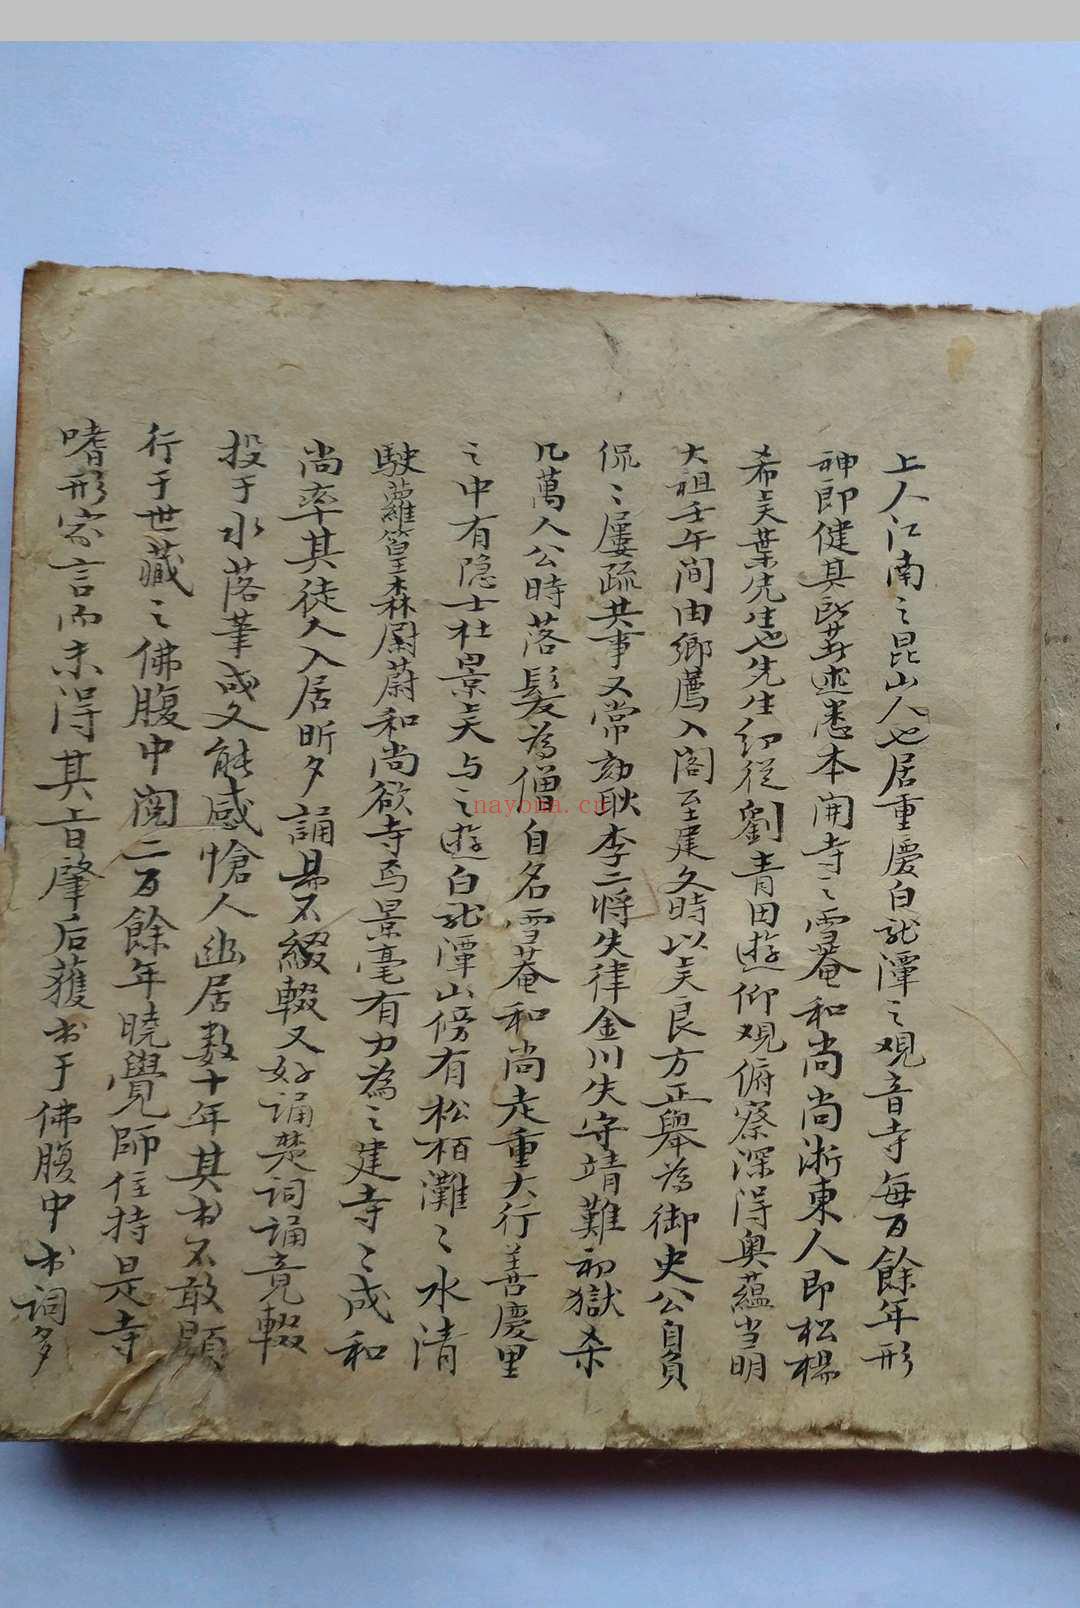 上人江南之昆山人也居重慶白龙潭之观音寺每百餘年形
神即健其所述悉本開寺之雪菴和尚尚浙東人即松楊
希夫葉先生也先生幼從劉青田遊仰观俯察深得奥蘊当明
大祖壬午间由鄉薦入阁至建文時以夫良方正舉為御史公自負
侃〻屢疏共事又常劾耿李二將失律金川失守靖難初獄杀
几萬人公時落髮為僧自名雪菴和尚走重大行善慶里
之中有隐士杜景夫与之遊白龙潭山傍有松栢灘〻水清
駛蘿篁森蔚蔚和尚欲寺焉景毫有力為之建寺〻成和
尚率其徒人入居昕夕誦易不綴輟又好誦楚词誦竟輟
投于水落筆成文能感愴人幽居数十年其书不敢顕
行于世藏之佛腹中阅二百餘年曉覺師住持是寺
嗜形家言而未得其旨肇后獲书于佛腹中书词多
nayona.cn